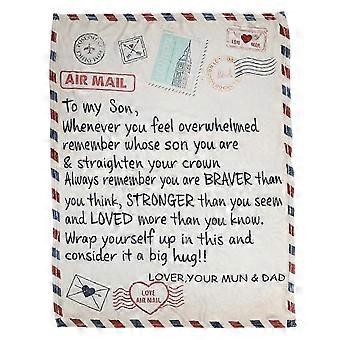 LOVE MOM
AIR MAIL
To my Son,
Whenever you feel overwhelmed
remember whose son you are
& straighten your crown
Always remember you are BRAVER than
you think, STRONGER than you seem
and LOVED more than you know.
Wrap yourself up in this and
consider it a big hug!!
LOVER,YOUR MUN & DAD
LOVE
AIR MAIL